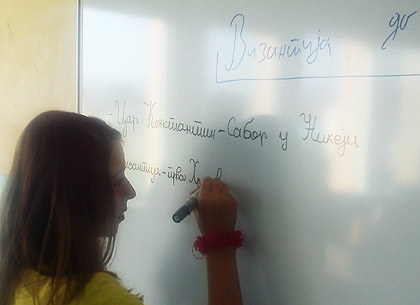 Византија до
-Цар Константин-Сабор у Никеји
изантија-прва Хр